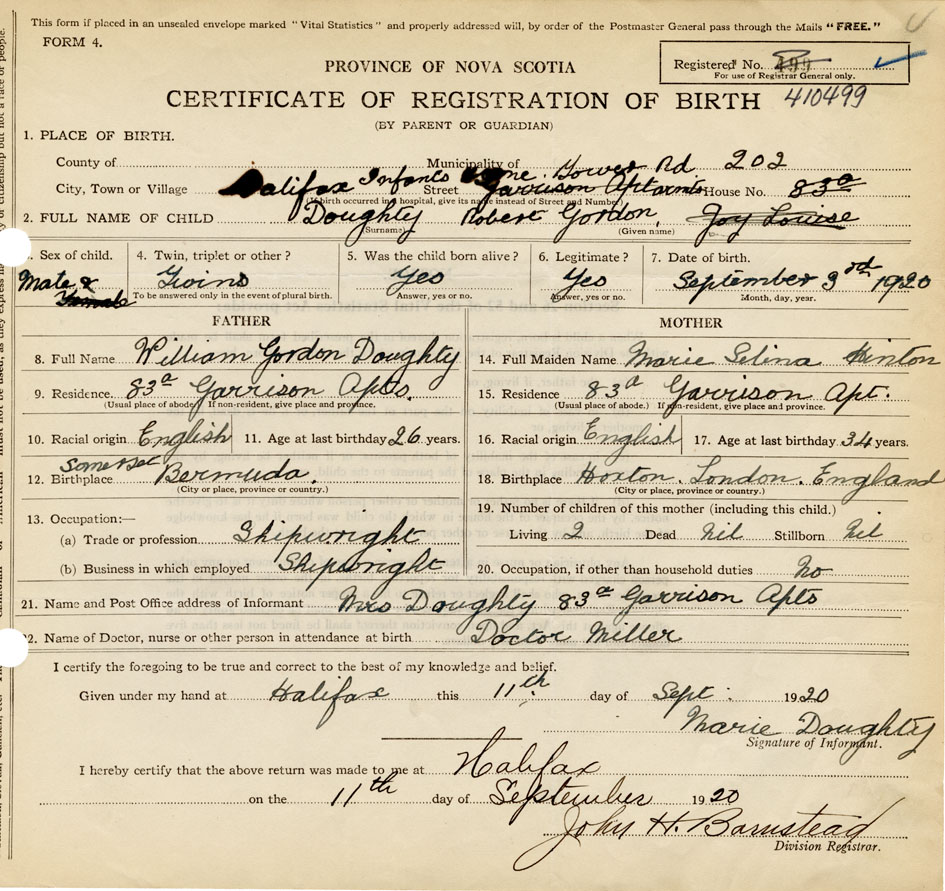 This form if placed in an unsealed envelope marked "Vital Statistics" and properly addressed will, by order of the Postmaster General pass through the Mails "FREE."
FORM 4.
Registered No. 499
For use of Registrar General only.
PROVINCE OF NOVA SCOTIA
CERTIFICATE OF REGISTRATION OF BIRTH 410499
(BY PARENT OR GUARDIAN)
1. PLACE OF BIRTH.
County of Municipality of
Infants Home Tower Rd 202
City, Town or Village Halifax Street Garrison Apt House No. 83a
(If birth occurred in hospital, give its name instead of Street and Number)
2. FULL NAME OF CHILD Doughty Robert Gordon, Joy Louise
(Surname) (Given name)
3. Sex of child. 4. Twin, triplet or other? 5. Was the child born alive? 6. Legitimate? 7. Date of birth.
Male & Female Twins Yes Yes September 3rd 1920
To be answered only in the event of plural birth. Answer, yes or no. Answer, yes or no. Month, day, year.
FATHER MOTHER
8. Full Name William Gordon Doughty 14. Full Maiden Name Marie Selina Hinton
9. Residence 83a Garrison Apts. 15. Residence 83a Garrison Apt.
(Usual place of abode.) If non-resident, give place and province. (Usual place of abode.) If non-resident, give place and province.
10. Racial origin English 11. Age at last birthday 26 years. 16. Racial origin English 17. Age at last birthday 34 years.
12. Birthplace Somerset Bermuda. 18. Birthplace Hoxton. London. England
(City or place, province or country.) (City or place, province or country.)
13. Occupation:— 19. Number of children of this mother (including this child.)
(a) Trade or profession Shipwright Living 2 Dead Nil Stillborn Nil
(b) Business in which employed Shipwright 20. Occupation, if other than household duties No
21. Name and Post Office address of Informant Mrs Doughty 83a Garrison Apts
22. Name of Doctor, nurse or other person in attendance at birth Doctor Miller
I certify the foregoing to be true and correct to the best of my knowledge and belief.
Given under my hand at Halifax this 11th day of Sept. 1920
Marie Doughty
Signature of Informant.
I hereby certify that the above return was made to me at Halifax
on the 11th day of September 1920
John H. Barnstead
Division Registrar.